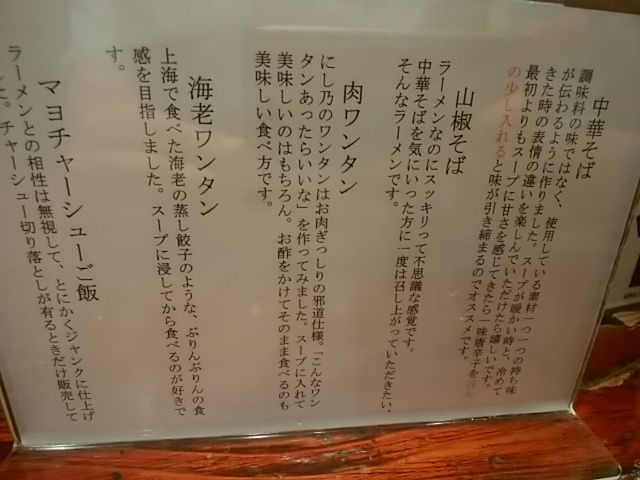 中華そば
調味料の味ではなく、使用している素材一つ一つの持ち味
が伝わるように作りました。スープが暖かい時と、冷めて
きた時の表情の違いを楽しんでいただけたら嬉しいです。
最初よりもスープに甘さを感じてきたら一味唐辛子をほん
の少し入れると味が引き締まるのでオススメです。
山椒そば
ラーメンなのにスッキリって不思議な感覚です。
中華そばを気にいった方に一度は召し上がっていただきたい、
そんなラーメンです。
肉ワンタン
にし乃のワンタンはお肉ぎっしりの邪道仕様。「こんなワン
タンあったらいいな」を作ってみました。スープに入れて
美味しいのはもちろん。お酢をかけてそのまま食べるのも
美味しい食べ方です。
海老ワンタン
上海で食べた海老の蒸し餃子のような、ぷりんぷりんの食
感を目指しました。スープに浸してから食べるのが好きで
す。
マヨチャーシューご飯
ラーメンとの相性は無視して、とにかくジャンクに仕上げ
ました。チャーシュー切り落としが有るときだけ販売して